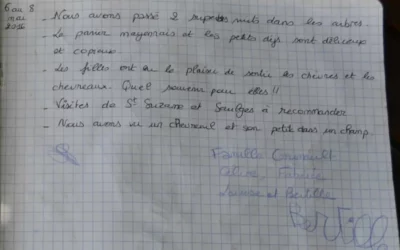 6 au 8
mai
- Nous avons passé 2 superbes nuits dans les arbres.
- Le panier mayennais et les petits dejs sont délicieux
et copieux.
- Les filles ont eu le plaisir de sentir les chèvres et les
chevreaux. Quel souvenir pour elles !!
- Visites de St Suzanne et Saulges à recommander
- Nous avons vu un chevreuil et son petit dans un champ.
Famille
Céline,
Louise et Bertille
Bertille